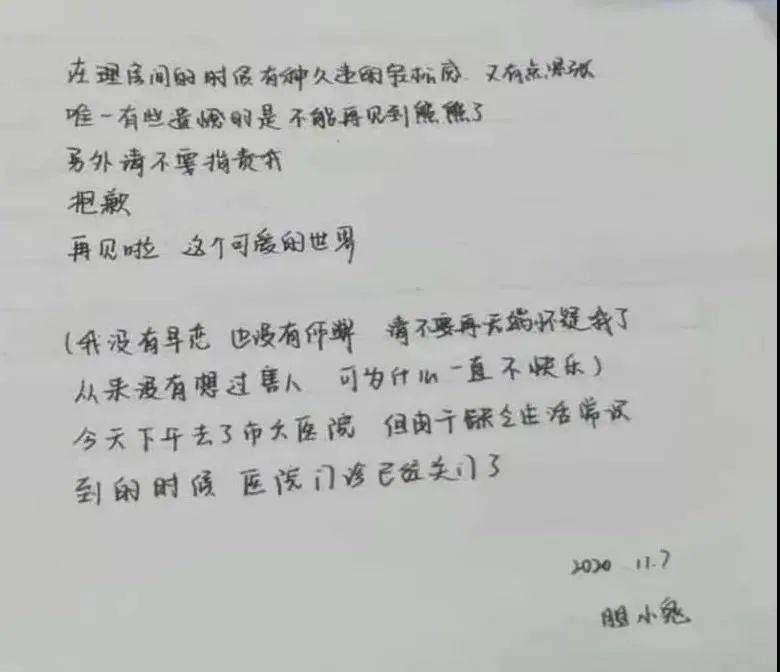 在理房间的时候有种久违的轻松感 又有点紧张
唯一有些遗憾的是不能再见到熊熊了
另外请不要指责我
抱歉
再见啦 这个可爱的世界
(我没有早恋 也没有作弊 请不要再无端怀疑我了
从来没有想过害人 可为什么一直不快乐)
今天下午去了市大医院 但由于缺乏生活常识
到的时候 医院门诊已经关门了
2020 11.7
胆小鬼